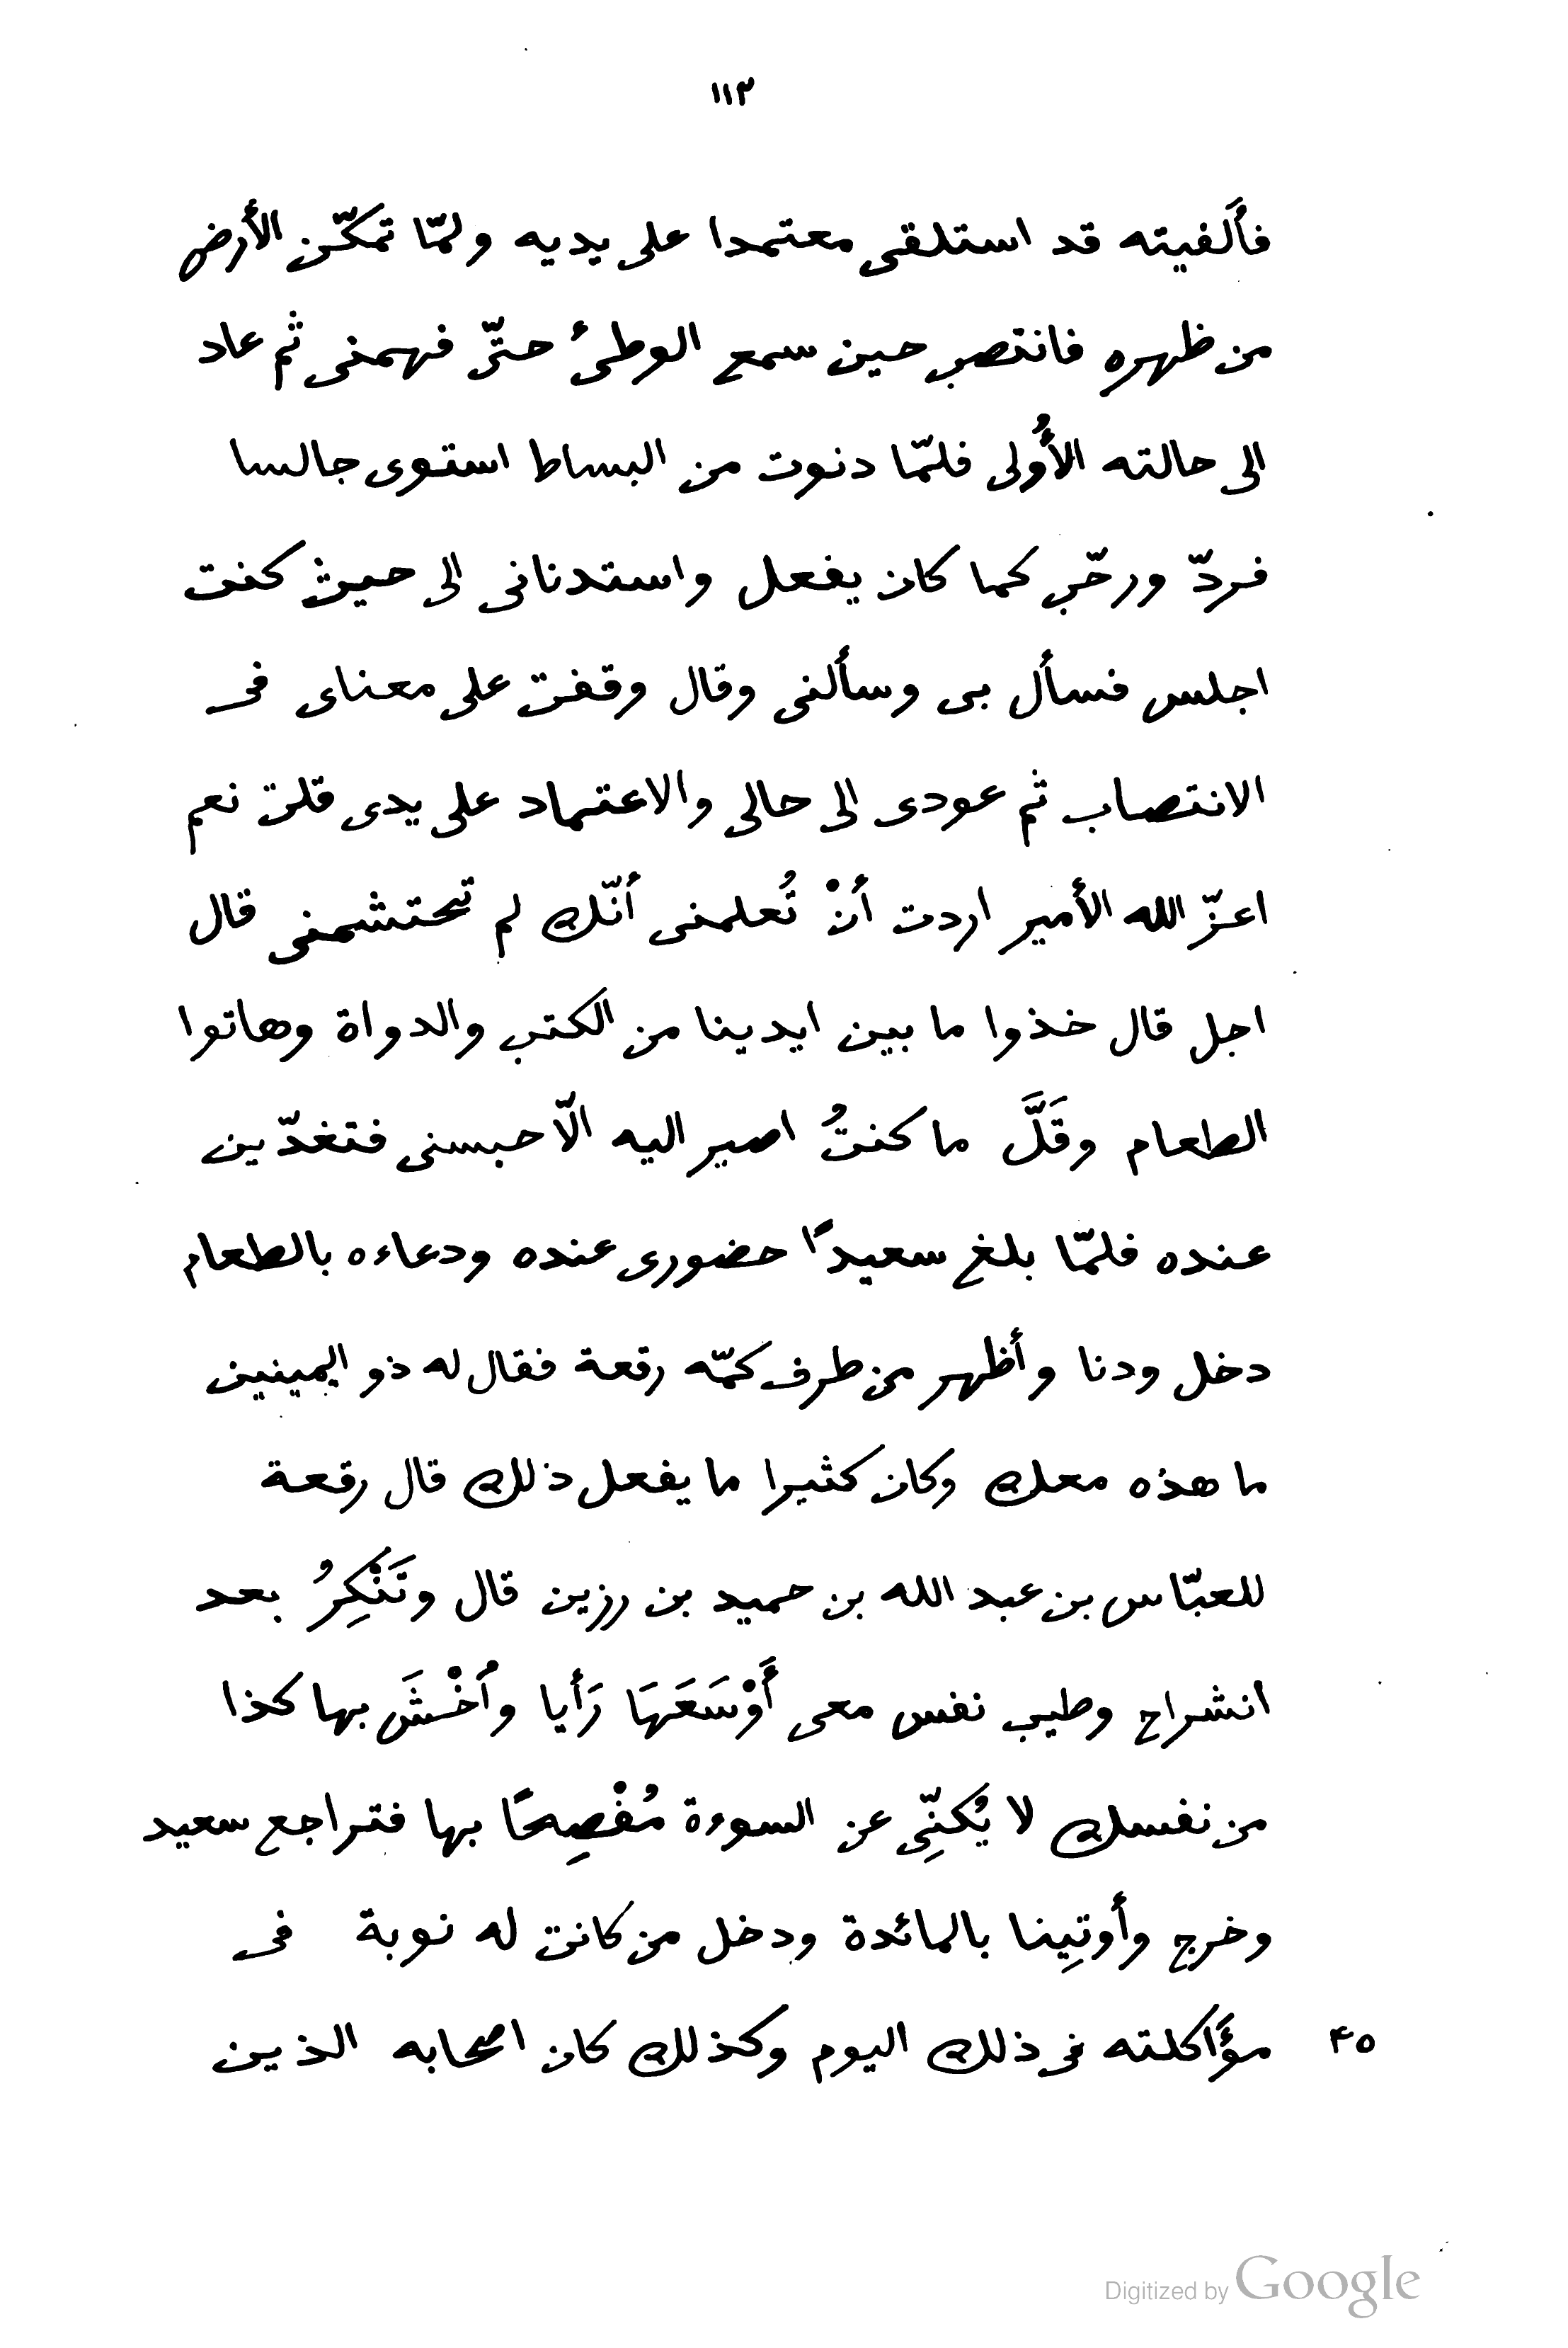 ١١٣
فأَلفيته قد استلقى معتمدا على يديه ولمّا تمكّن الأرض
من ظهره فانتصب حين سمع الوطئ حتّى فهمنى ثم عاد
الى حالته الأُولى فلمّا دنوت من البساط استوى جالسا
فردّ ورحّب كما كان يفعل واستدنانى الى حيث كنت
اجلس فسأل بى وسألنى وقال وقفت على معناى فى
الانتصاب ثم عودى الى حالى والاعتماد على يدى قلت نعم
اعزّ الله الأمير اردت أنْ تُعلمنى أنّك لم تحتشمنى قال
اجل قال خذوا ما بين ايدينا من الكتب والدواة وهاتوا
الطعام وقَلَّ ما كنتُ اصير اليه الّا حبسنى فتغدّين
عنده فلمّا بلغ سعيدًا حضورى عنده ودعاءه بالطعام
دخل ودنا وأظهر من طرف كمّه رقعة فقال له ذو اليمينين
ما هذه معك وكان كثيرا ما يفعل ذلك قال رقعة
للعبّاس بن عبد الله بن حميد بن رزين قال وتَنْكِرُ بعد
انشراح وطيب نفس معى أَوْسَعَهَا رَأيا وأَخْشَ بها كذا
من نفسك لا يُكنِّى عن السوءة مُفْصِحًا بها فتراجع سعيد
وخرج وأوتِينا بالمائدة ودخل من كانت له نوبة فى
مؤَاكلته فى ذلك اليوم وكذلك كان اصحابه الذين
٤٥
Digitized by Google